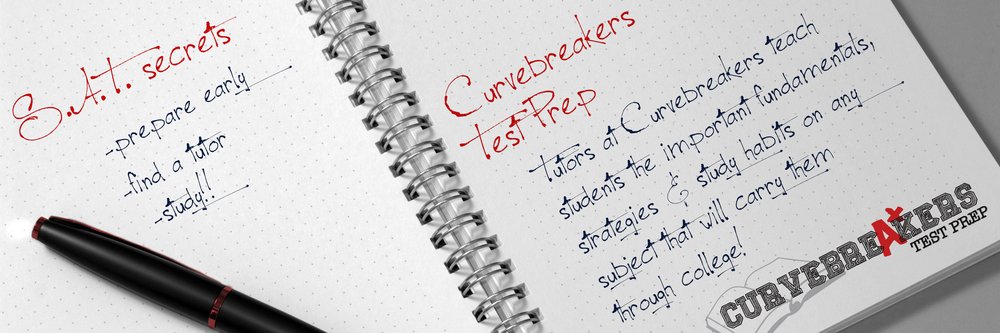 S.A.T. secrets
-prepare early
-find a tutor
-study!!
Curvebreakers
test Prep
tutors at Curvebreakers teach
students the important fundamentals,
strategies & study habits on any
subject that will carry them
through college!
CURVEBREAKERS
TEST PREP